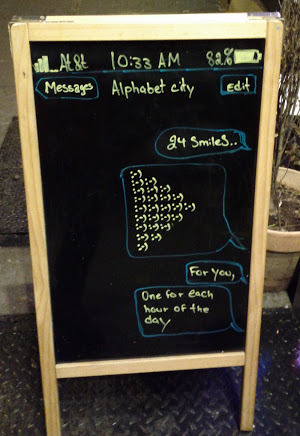 AT&T 10:33 AM 82%
Messages Alphabet city Edit
24 Smiles..
:-)
:-) :-)
:-) :-) :-)
:-) :-) :-) :-)
:-) :-) :-) :-) :-)
:-) :-) :-) :-)
:-) :-) :-)
:-) :-)
:-)
For you,
One for each
hour of the
day